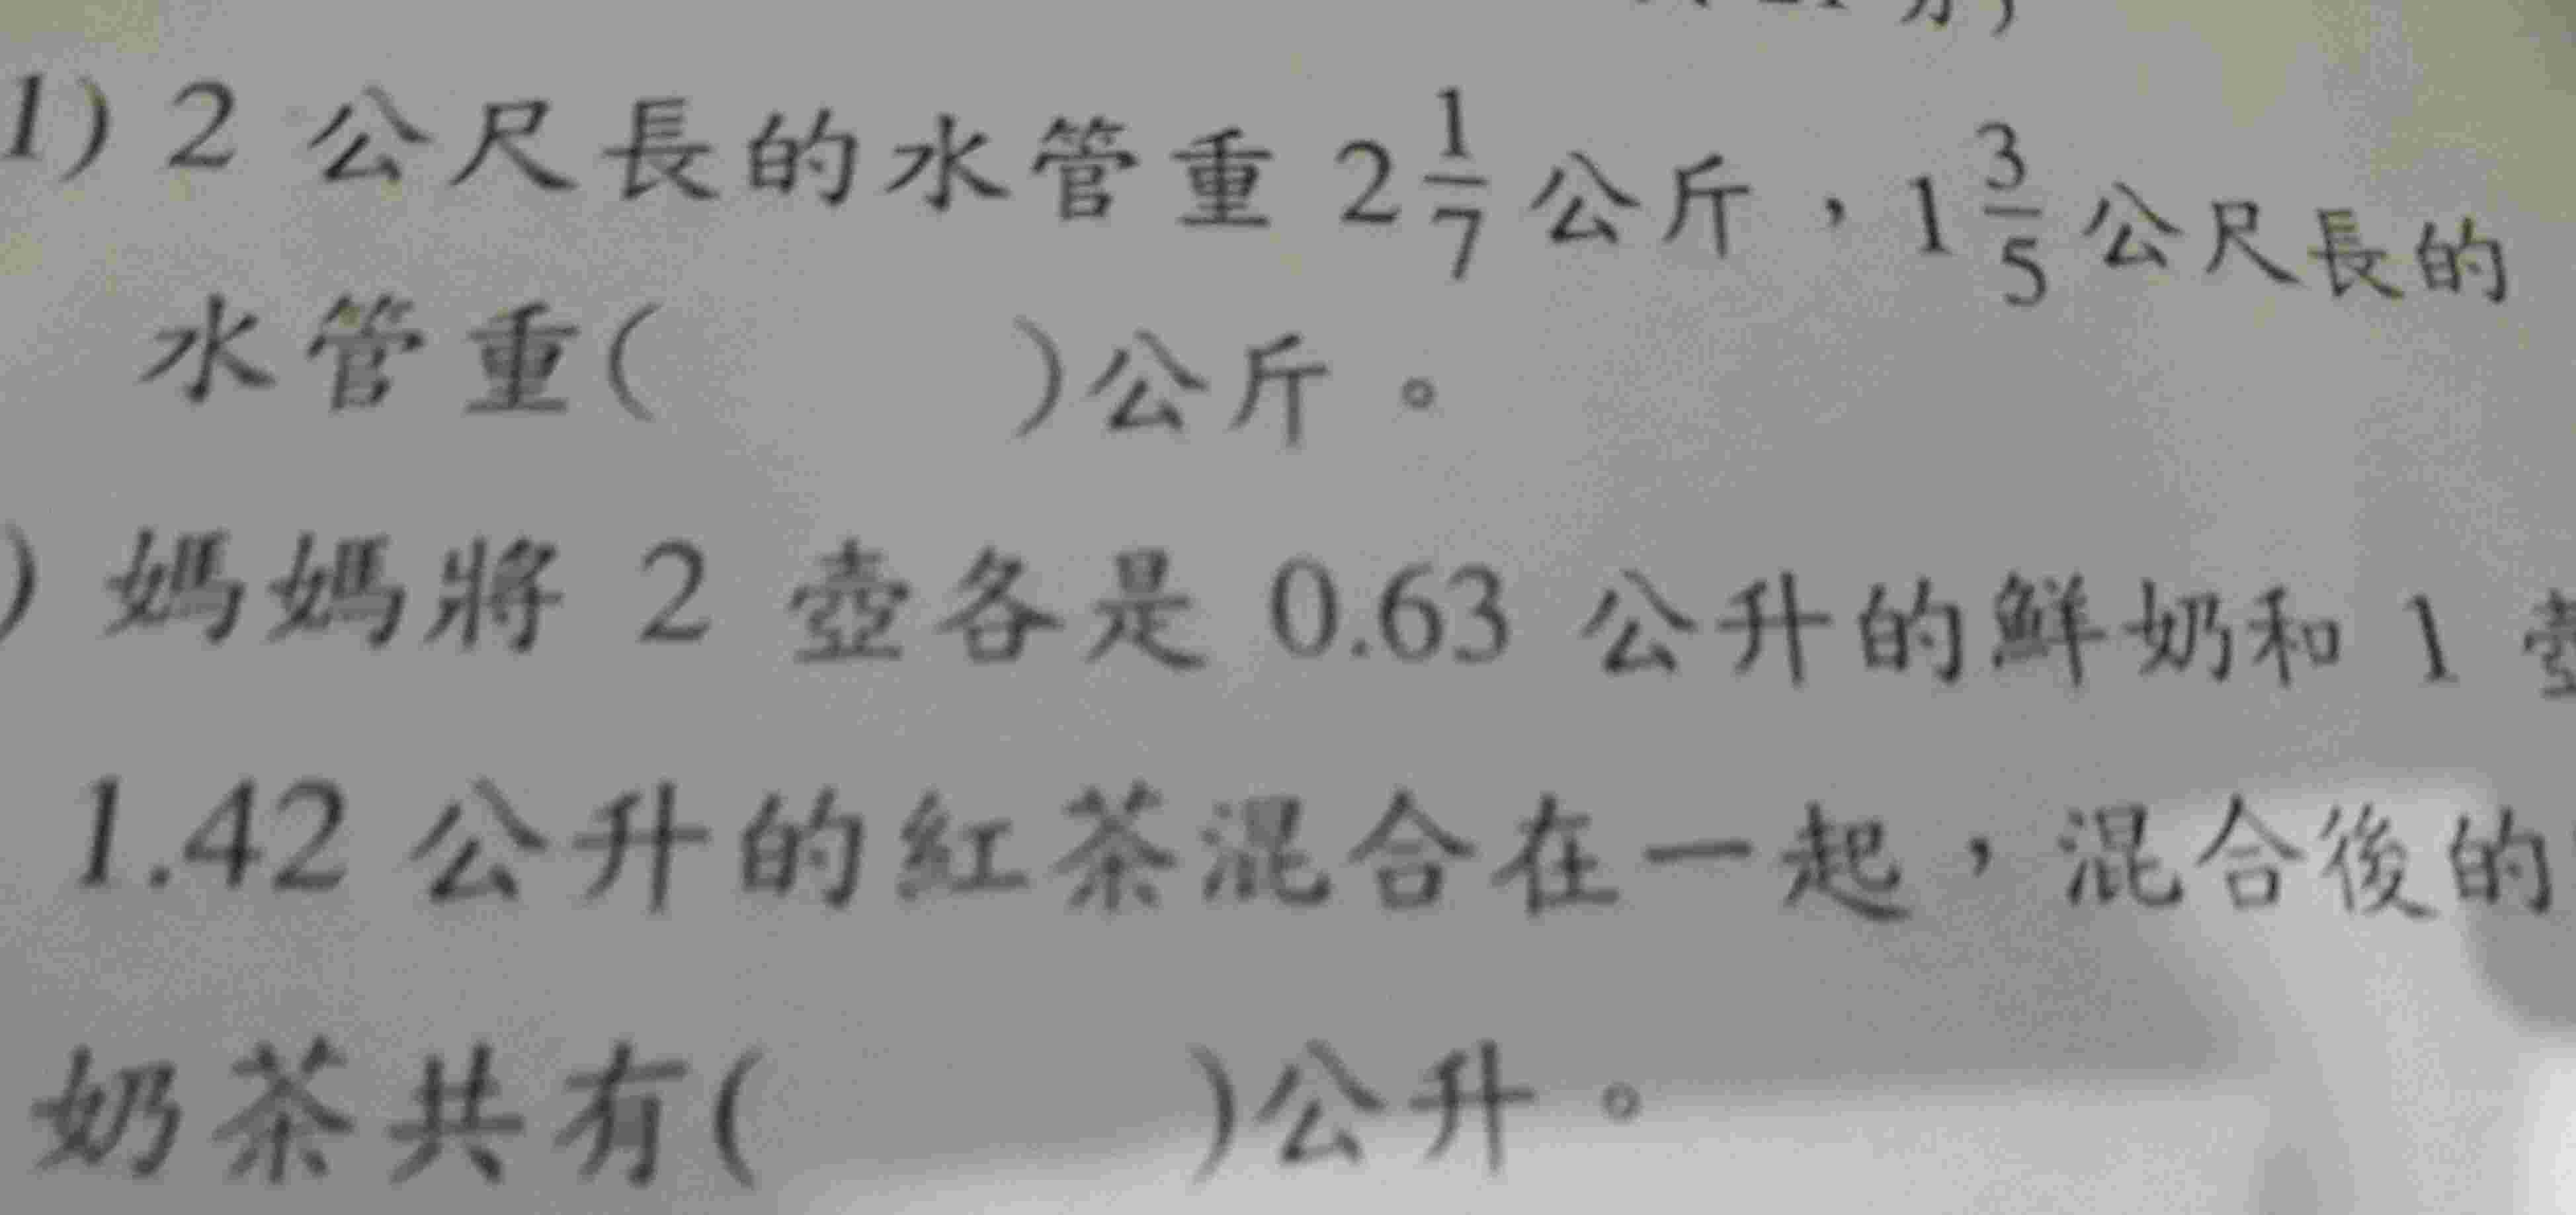 1) 2 公尺長的水管重 2 1/7 公斤，1 3/5 公尺長的
水管重(　　　)公斤。
) 媽媽將 2 壺各是 0.63 公升的鮮奶和 1 壺
1.42 公升的紅茶混合在一起，混合後的
奶茶共有(　　　)公升。